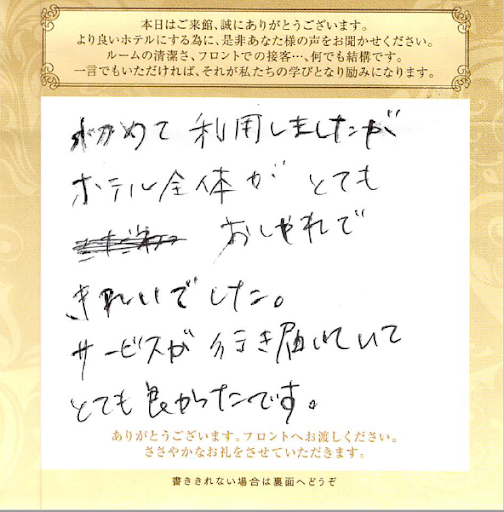 本日はご来館、誠にありがとうございます。
より良いホテルにする為に、是非あなた様の声をお聞かせください。
ルームの清潔さ、フロントでの接客…、何でも結構です。
一言でもいただければ、それが私たちの学びとなり励みになります。
初めて利用しましたが
ホテル全体がとても
おしゃれで
きれいでした。
サービスが行き届いていて
とても良かったです。
ありがとうございます。フロントへお渡しください。
ささやかなお礼をさせていただきます。
書ききれない場合は裏面へどうぞ